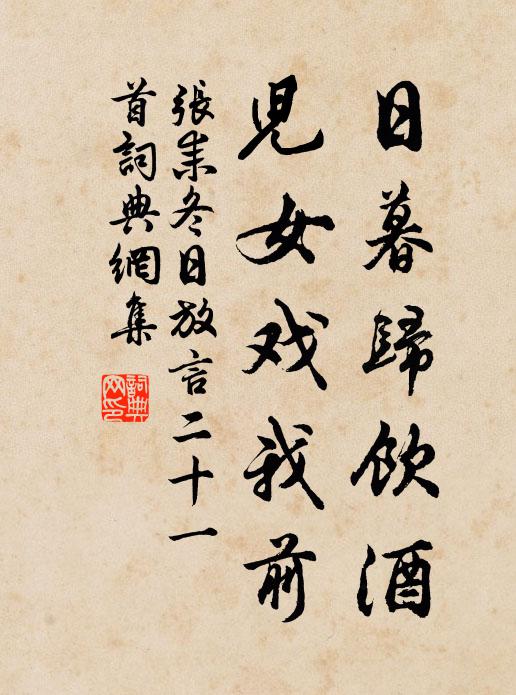 日暮歸飲酒
兒女戏我前
張耒冬日放言二十一
首詞典網集
詞典
网印